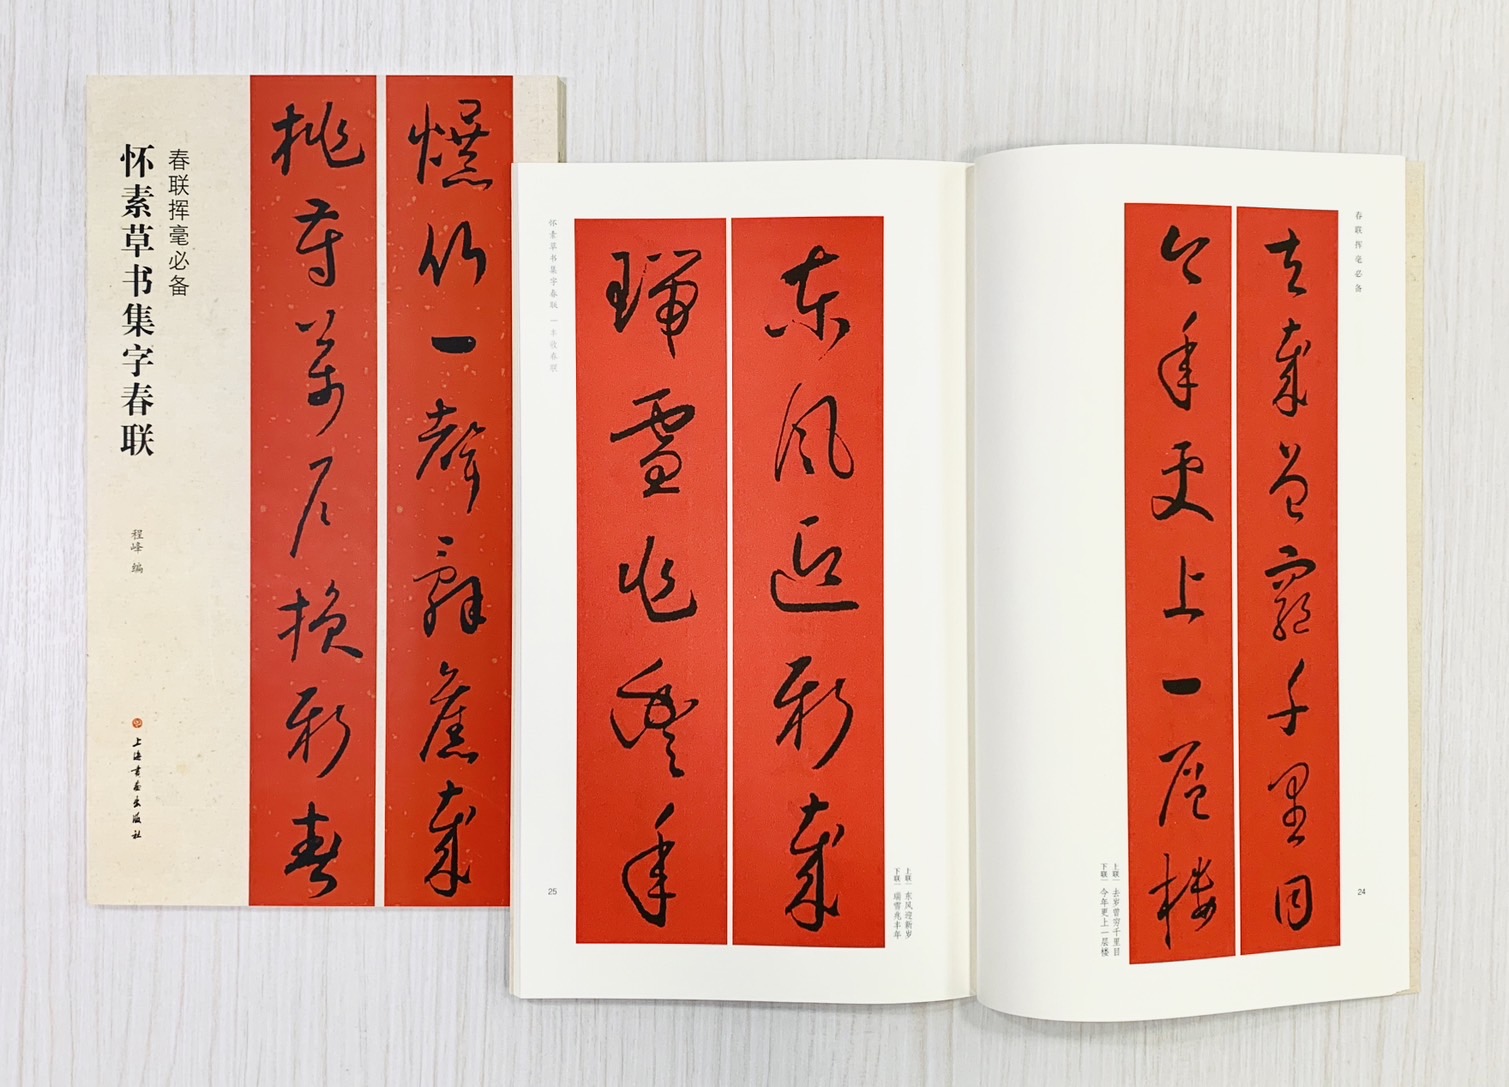 爆竹一聲辭舊歲
桃符萬戶換新春
春联挥毫必备
怀素草书集字春联
程峰 编
上海书画出版社
春联挥毫必备
去歲曾窮千里目
今年更上一層樓
上联｜去岁曾穷千里目
下联｜今年更上一层楼
24
上联｜东风迎新岁
下联｜瑞雪兆丰年
東風迎新歲
瑞雪兆豐年
怀素草书集字春联｜丰收春联
25